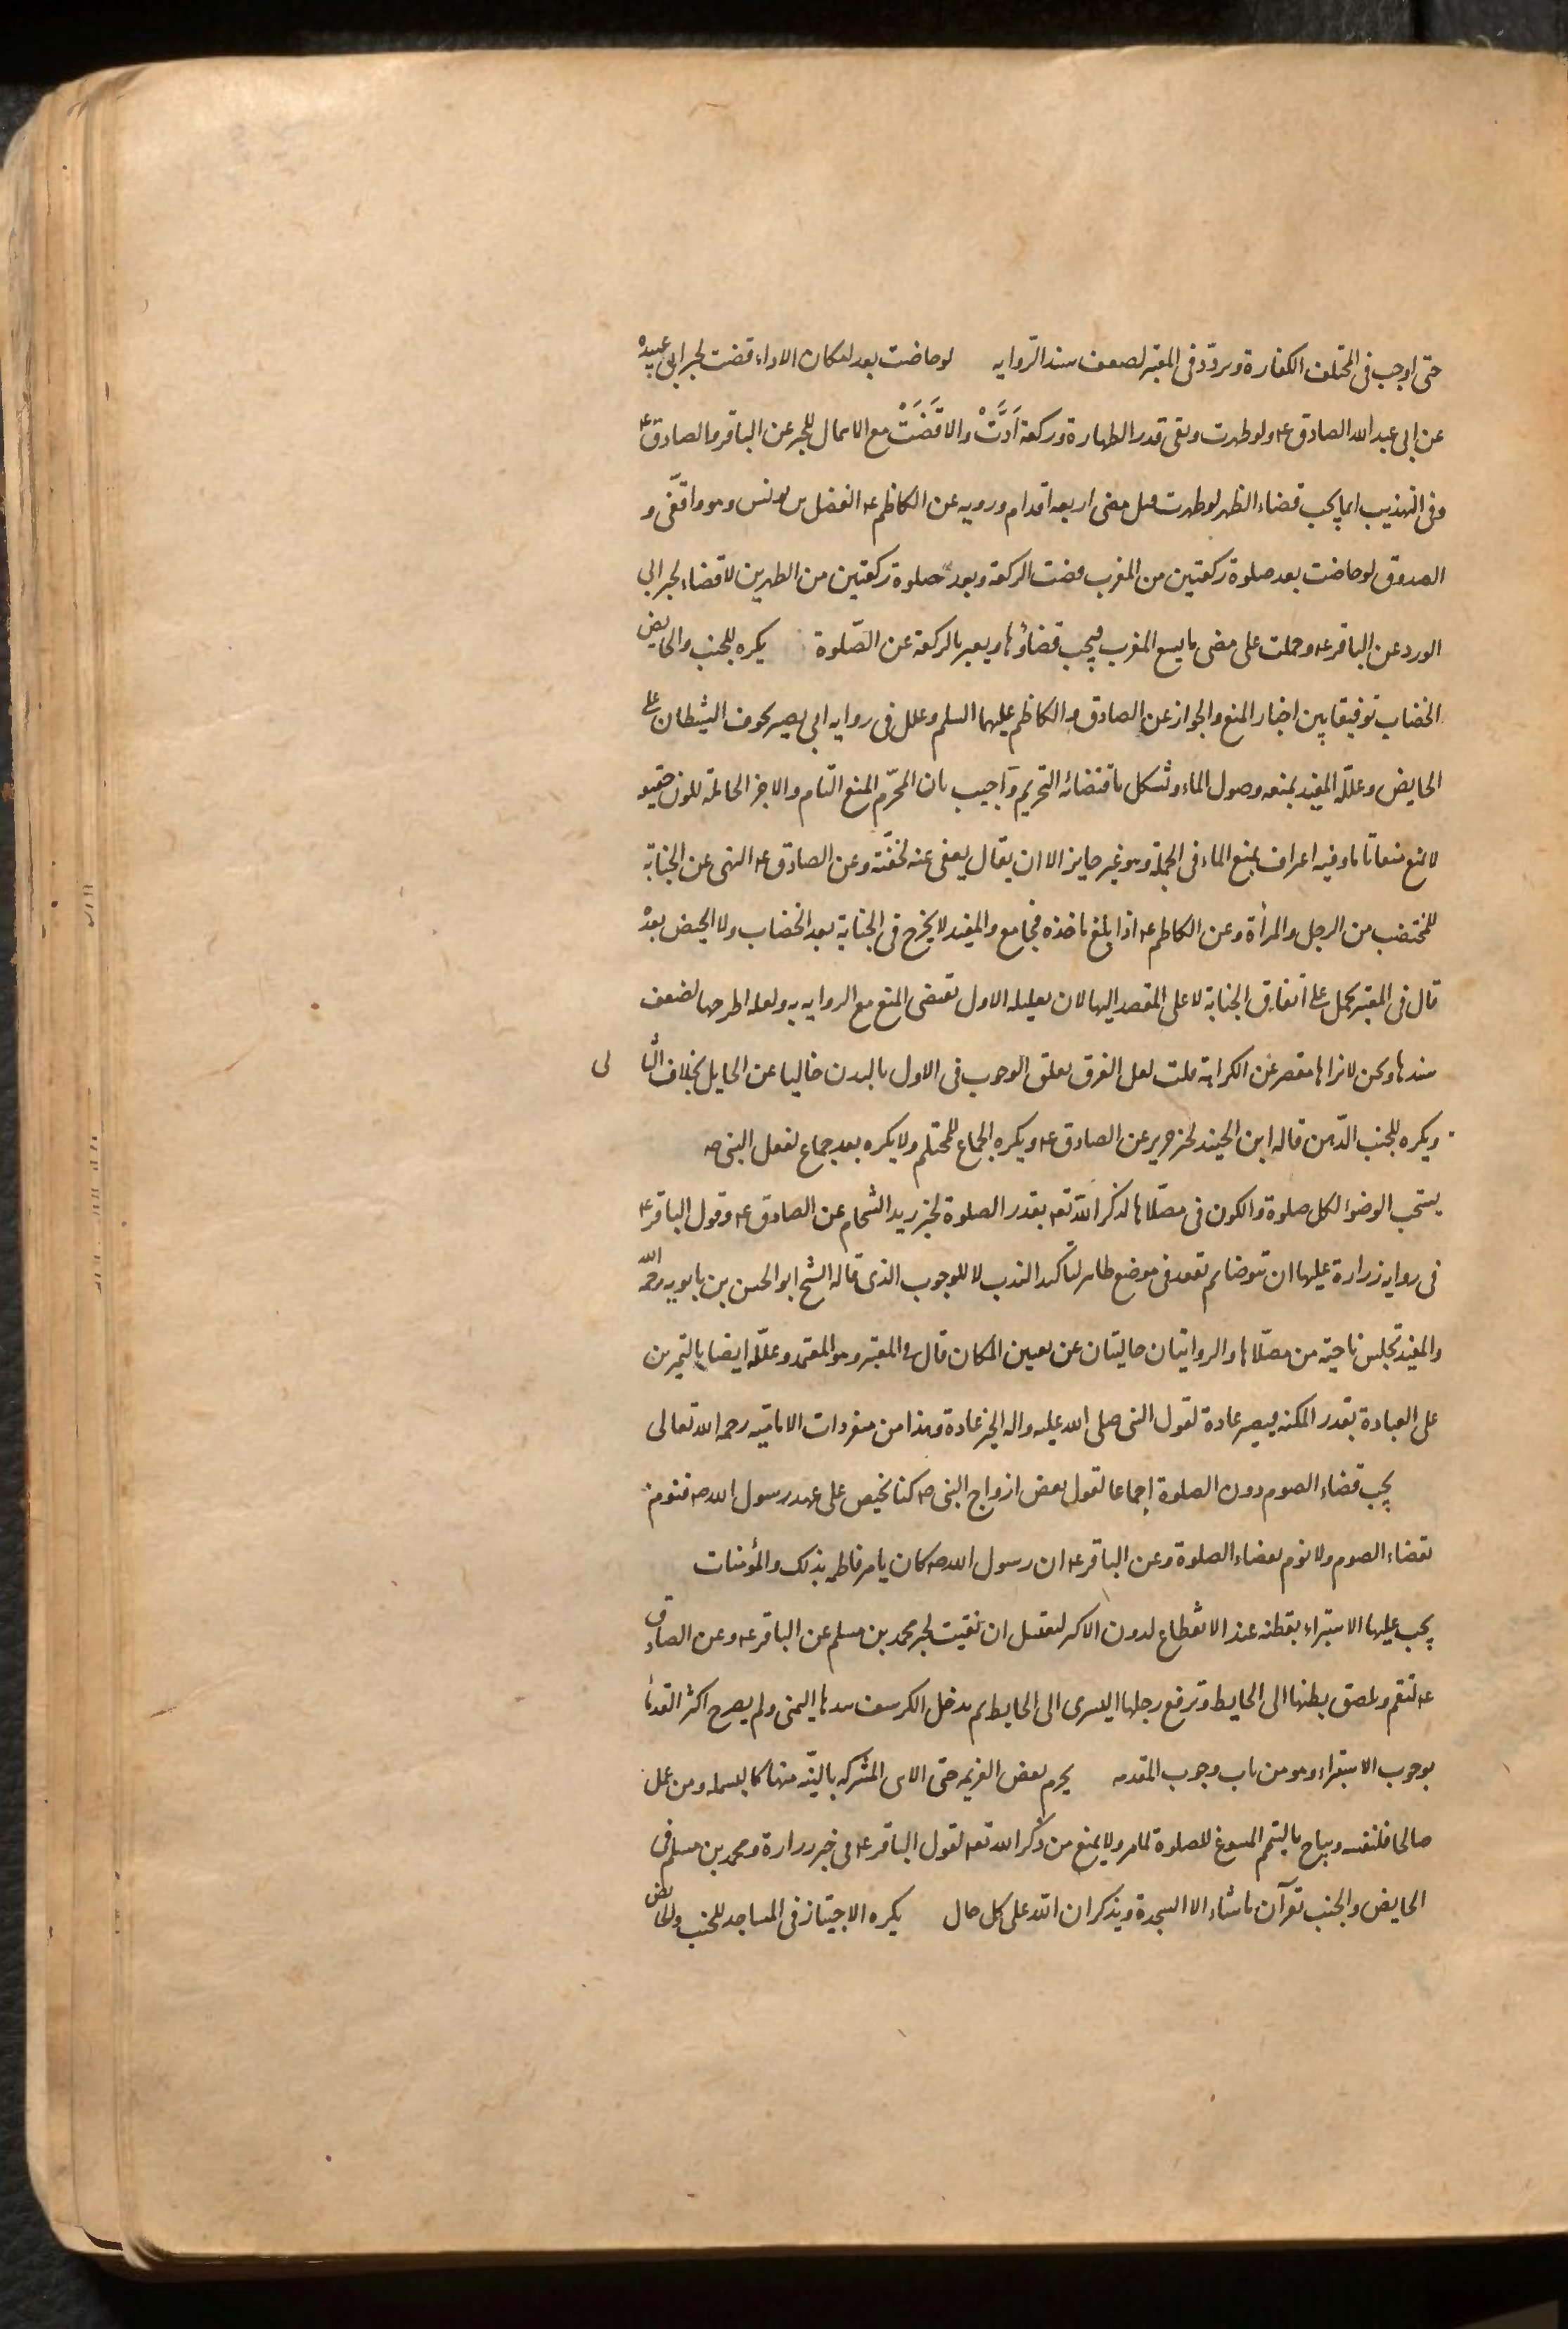 حتى اوجب فى المختلف الكفارة وتردد فى المعتبر لضعف سند الرّوايه لو حاضت بعد امكان الاداء قضت لخبر ابى عبيده
عن ابى عبد الله الصادق عه ولو طهرت وبقى قدر الطهارة وركعة اَدَّتْ والا قَضَتْ مع الاهمال للخبر عن الباقر والصادق عه
وفى التهذيب انما يجب قضاء الظهر لو طهرت قبل مضى اربعه اقدام ورويه عن الكاظم عه الفضل بن يونس وهو واقفى و
الصدوق لو حاضت بعد صلوة ركعتين من المغرب قضت الركعة وبعد صلوة ركعتين من الظهرين لا قضاء لخبر ابى
الورد عن الباقر عه وحملت على مضى ما يسع المغرب فيجب قضاؤها ويعبر بالركعة عن الصّلوة يكره للجنب والحايض
الخضاب توفيقا بين اخبار المنع والجواز عن الصادق والكاظم عليهما السلم وعلل فى روايه ابى بصير بخوف الشيطان على
الحايض وعلله المفيد بمنعه وصول الماء وتشكل باقتضائه التحريم وآجيب بان المحرّم المنع التّام والاجزا الحاملة للون خفيفة
لا تمنع منعا تاما وفيه اعتراف بمنع الماء فى الجملة وهو غير جايز الا ان يقال يعفى عنه لخفّته وعن الصادق عه النهى عن الجنابة
للمختضب من الرجل والمرأة وعن الكاظم عه اذا بلغ ماخذه فجامع والمفيد لا يخرج فى الجنابة بعد الخضاب ولا الحيض بعده
قال فى المعتبر يحمل على اتفاق الجنابة لا على القصد اليها لان تعليله الاول تقتضى المنع مع الروايه به ولعله اطرحها لضعف
سندها ونحن لا نراها تقصر عن الكراهة قلت لعل الفرق تعلق الوجوب فى الاول بالبدن خاليا عن الحايل بخلاف الثا نى
ويكره للجنب الدّهن قاله ابن الجنيد لخبر حريز عن الصادق عه ويكره الجماع للمحتلم ولا يكره بعد جماع لفعل النبى صه
يستحب الوضو لكل صلوة والكون فى مصلاها لذكر الله تعه بقدر الصلوة لخبر زيد الشحام عن الصادق عه وقول الباقر عه
فى روايه زرارة عليها ان تتوضا ثم تقعد فى موضع طاهر لتاكيد الندب لا للوجوب الذى قاله الشيخ ابو الحسن بن بابويه رحمه الله
والمفيد تجلس ناحية من مصلّاها والروايتان خاليتان عن تعيين المكان قال فى المعتبر وهو المعتمد وعلله ايضا بالتمرين
على العبادة بقدر المكنه فيصير عادة لقول النبى صلى الله عليه واله الخير عادة وهذا من منفردات الاماميّه رحمه الله تعالى
يجب قضاء الصوم دون الصلوة اجماعا لقول بعض ازواج النبى صه كنا نحيض على عهد رسول الله صه فنومر
بقضاء الصوم ولا نومر بقضاء الصلوة وعن الباقر عه ان رسول الله صه كان يامر فاطمه بذلك والمؤمنات
يجب عليها الاستبراء بقطنه عند الانقطاع لدون الاكثر لتغتسل ان نقيت لخبر محمد بن مسلم عن الباقر عه وعن الصادق
عه لتقم وتلصق بطنها الى الحايط وترفع رجلها اليسرى الى الحايط ثم تدخل الكرسف بيدها اليمنى ولم يصرح اكثر القدما
بوجوب الاستبراء وهو من باب وجوب المقدمه يحرم بعض العزيمه حتى الاى المشتركه بالنيّه منها كالبسمله ومن عمل
صالحا فلنفسه ويباح بالتيمم المسوغ للصلوة لما مر ولا يمنع من ذكر الله تعه لقول الباقر عه فى خبر زرارة ومحمد بن مسلم فى
الحايض والجنب تقرآن ما شاء الا السجدة ويذكران الله على كل حال يكره الاجتياز فى المساجد للجنب والحايض